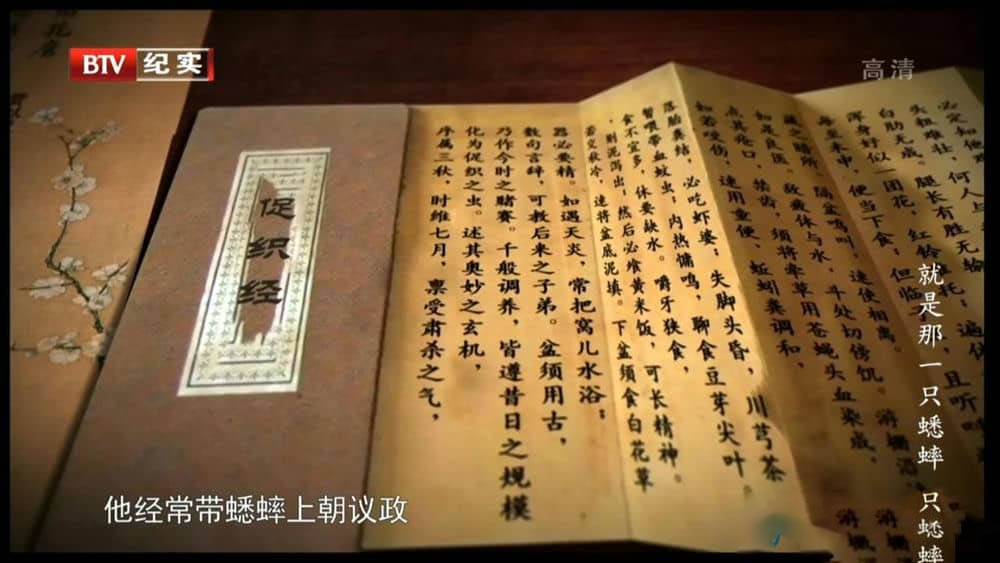 BTV 纪实
高清
促织经
序属三秋，时维七月，禀受肃杀之气，
化为促织之虫。述其奥妙之玄机，
乃作今时之赌赛。千般调养，皆遵昔日之规模
数句言辞，可教后来之子弟。盆须用古，
器必要精。如遇天炎，常把窝儿水浴；
若交秋冷，速将盆底泥填。下盆须食白花草
，则泥泻出；然后必飨黄米饭，可长精神。
食不宜多，休要缺水。嚼牙狭食，
暂喂带血蚊虫；内热慵鸣，聊食豆芽尖叶。
落胎粪结，必吃虾婆；失脚头昏，川芎茶
知若咬伤，速用童便、蚯蚓粪调和，
点其疮口，禁齿，须将牵草用苍蝇头血染成，
知是良医。敌疲体与水，斗处切傍饥。游栅
隔盆鸣叫，速使相离
来中，便当下食，
浑身好似一团花，
白肋无成，红铃
头粗难壮，腿长有胜无输
必定知
何人与
且听
就是那一只蟋蟀 只蟋蟀
他经常带蟋蟀上朝议政